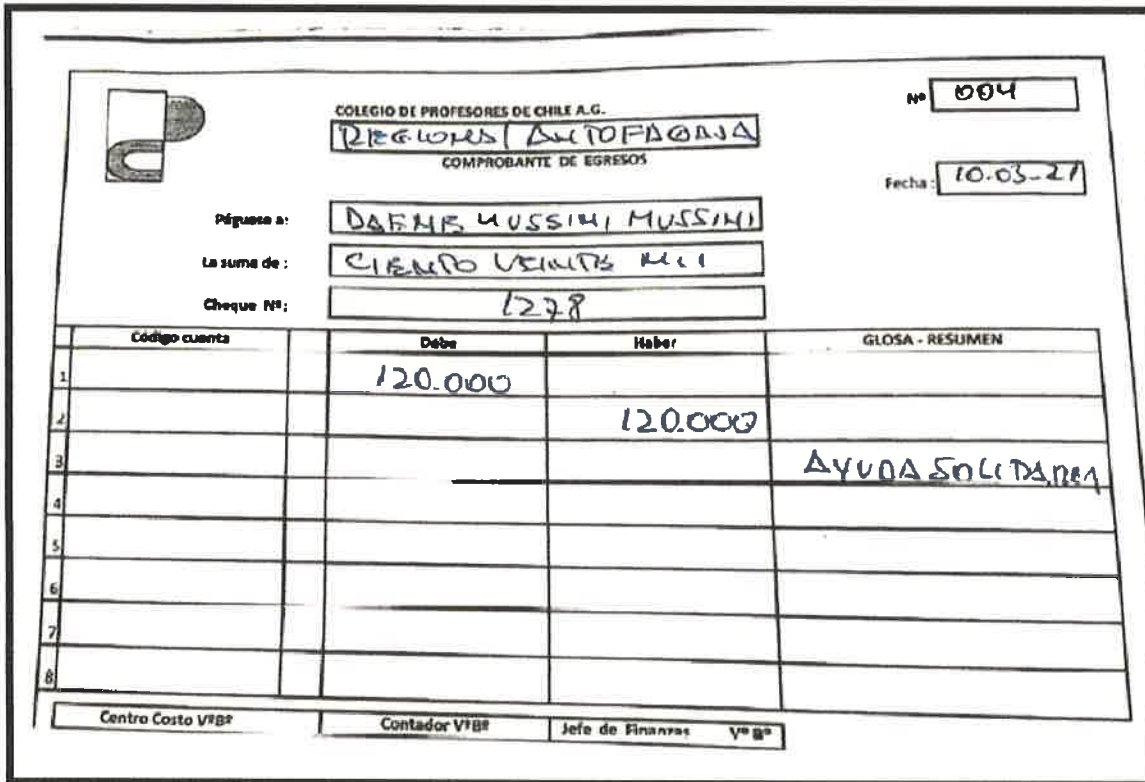 Nº 004
COLEGIO DE PROFESORES DE CHILE A.G.
REGIONAL ANTOFAGASTA
COMPROBANTE DE EGRESOS
Fecha: 10-03-21
Páguese a: DAFNE MUSSINI MUSSINI
La suma de : CIENTO VEINTE MIL
Cheque Nº: 1278
Código cuenta Debe Haber GLOSA - RESUMEN
1 120.000
2 120.000
3 AYUDA SOLIDARIA
4
5
6
7
8
Centro Costo VºBº Contador VºBº Jefe de Finanzas Vº Bº